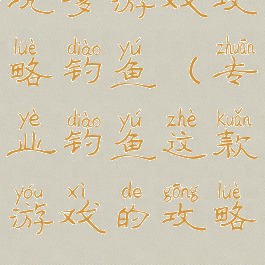 游戏攻
lüè diào yú zhuān
略钓鱼（专
yè diào yú zhè kuǎn
业钓鱼这款
yóu xì de gōng lüè
游戏的攻略